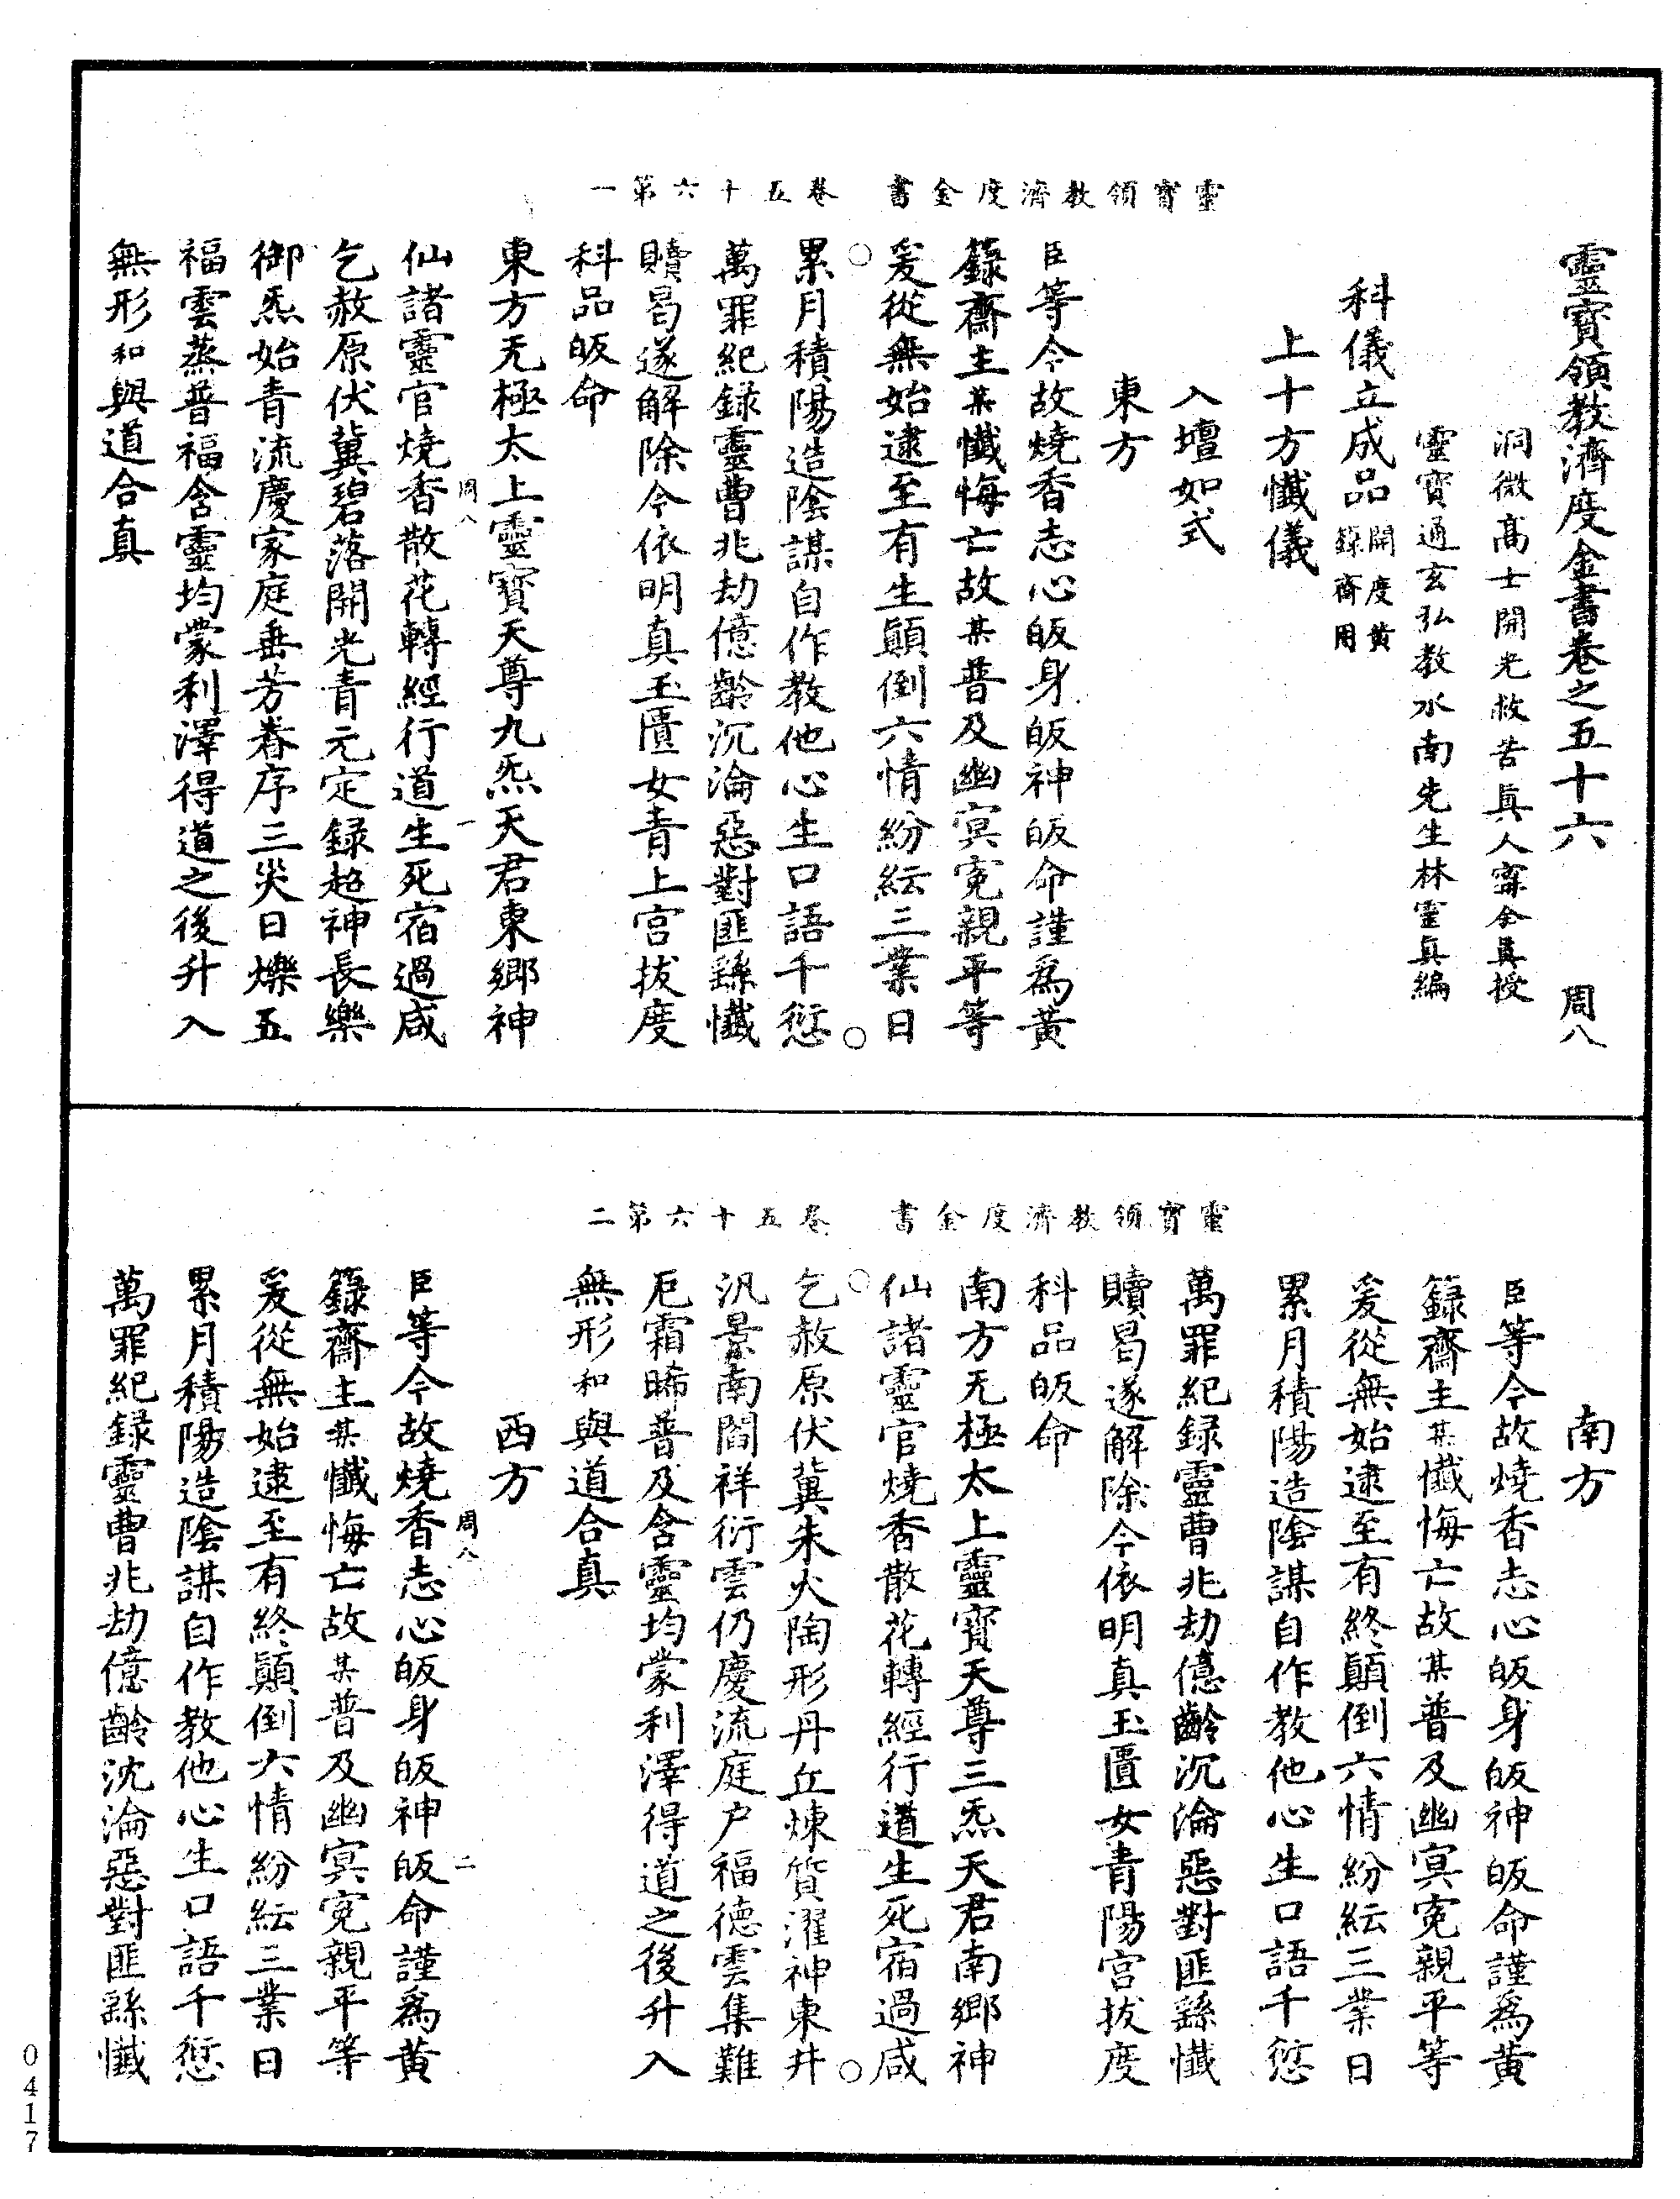 靈寶領教濟度金書卷之五十六　周八
洞微高士開光救苦真人甯全真授
靈寶通玄弘教水南先生林靈真編
科儀立成品開度黃籙齋用
上十方懺儀
入壇如式
東方
臣等今故燒香志心皈身皈神皈命謹為黃
籙齋主某懺悔亡故某普及幽冥寃親平等
爰從無始逮至有生顛倒六情紛紜三業日
累月積陽造陰謀自作教他心生口語千愆
萬罪紀錄靈曹兆劫億齡沉淪惡對匪繇懺
贖曷遂解除今依明真玉匱女青上宫拔度
科品皈命
東方无極太上靈寶天尊九炁天君東鄉神
仙諸靈官燒香散花轉經行道生死宿過咸
乞赦原伏冀碧落開光青元定錄超神長樂
御炁始青流慶家庭垂芳眷序三災日爍五
福雲蒸普福含靈均蒙利澤得道之後升入
無形和與道合真
靈寶領教濟度金書　卷五十六第一
周八　一
南方
臣等今故燒香志心皈身皈神皈命謹為黃
籙齋主某懺悔亡故某普及幽冥寃親平等
爰從無始逮至有終顛倒六情紛紜三業日
累月積陽造陰謀自作教他心生口語千愆
萬罪紀錄靈曹兆劫億齡沉淪惡對匪繇懺
贖曷遂解除今依明真玉匱女青陽宫拔度
科品皈命
南方无極太上靈寶天尊三炁天君南鄉神
仙諸靈官燒香散花轉經行道生死宿過咸
乞赦原伏冀朱火陶形丹丘煉質濯神東井
汎景南閻祥衍雲仍慶流庭户福德雲集難
厄霜晞普及含靈均蒙利澤得道之後升入
無形和與道合真
西方
臣等今故燒香志心皈身皈神皈命謹為黃
籙齋主某懺悔亡故某普及幽冥寃親平等
爰從無始逮至有終顛倒六情紛紜三業日
累月積陽造陰謀自作教他心生口語千愆
萬罪紀錄靈曹兆劫億齡沈淪惡對匪繇懺
靈寶領教濟度金書　卷五十六第二
周八　二
0417